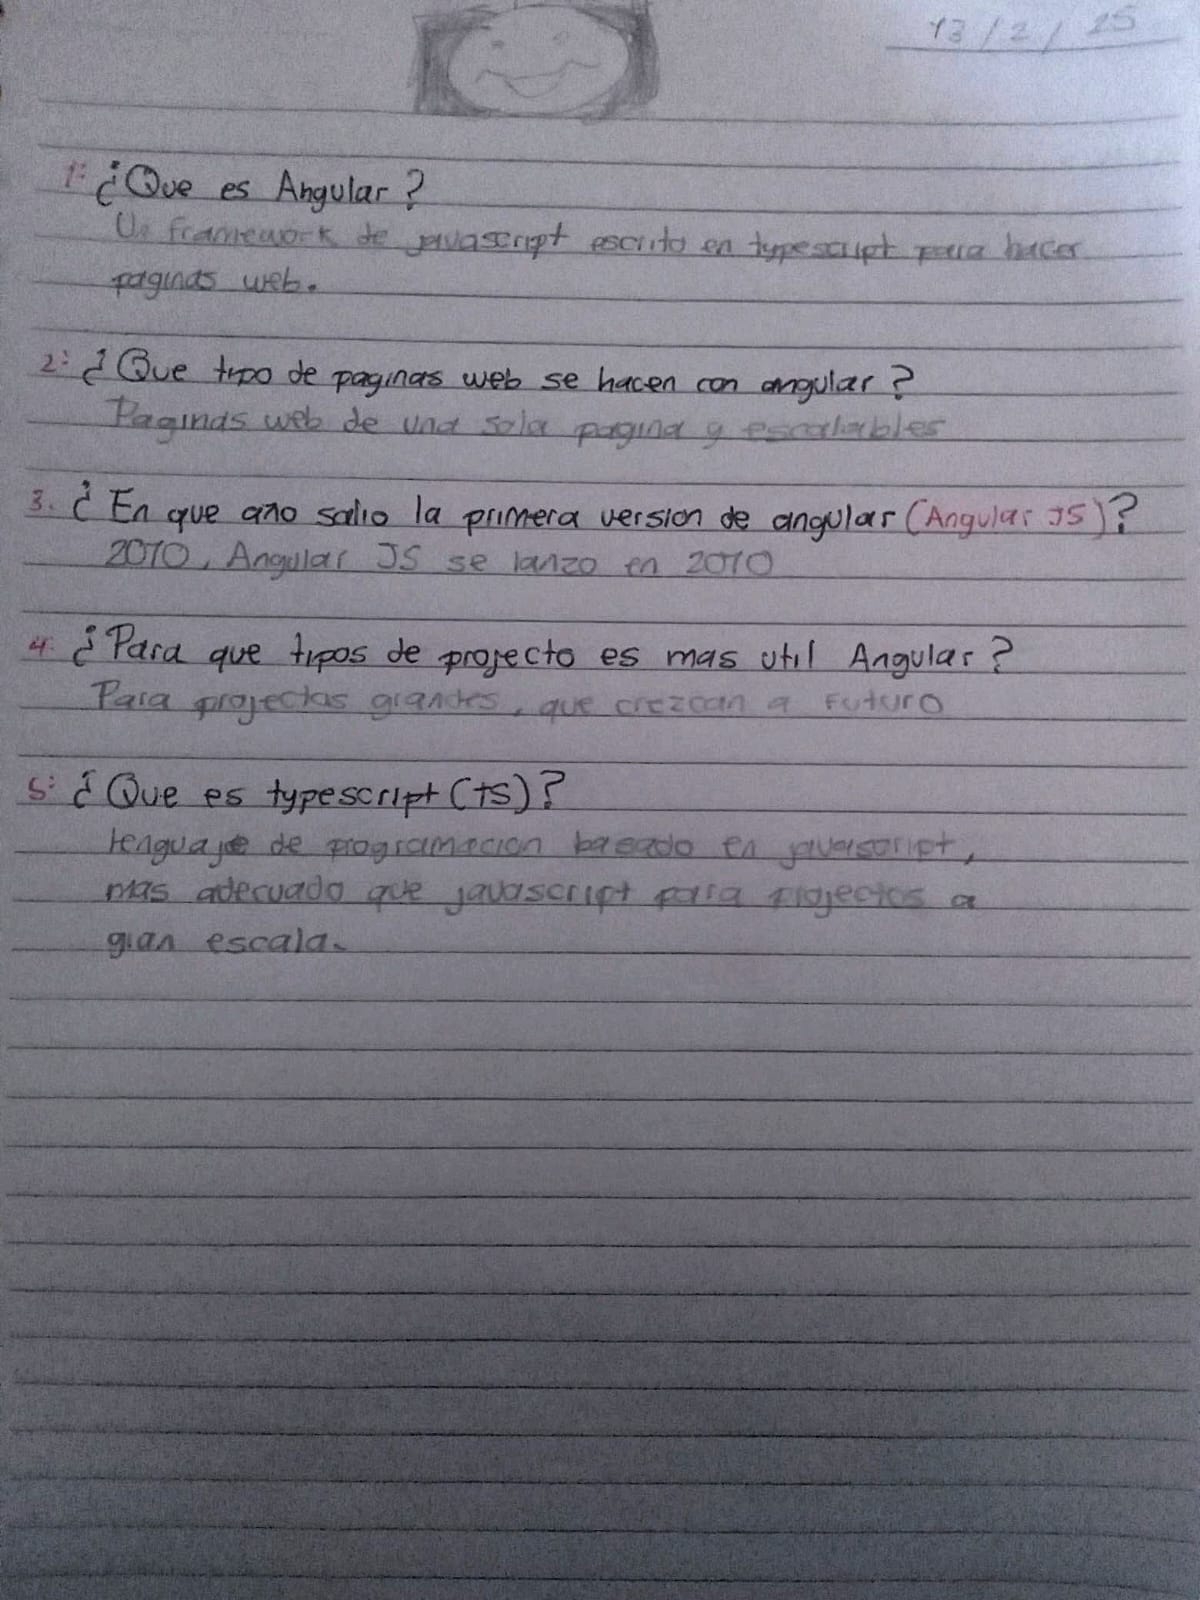 13/2/25
1: ¿Que es Angular?
Un framework de javascript escrito en typescript para hacer
paginas web.
2: ¿Que tipo de paginas web se hacen con angular?
Paginas web de una sola pagina y escalables
3. ¿En que año salio la primera version de angular (Angular JS)?
2010, Angular JS se lanzo en 2010
4. ¿Para que tipos de projecto es mas util Angular?
Para projectos grandes, que crezcan a futuro
5: ¿Que es typescript (TS)?
lenguaje de programacion basado en javascript,
mas adecuado que javascript para projectos a
gran escala.